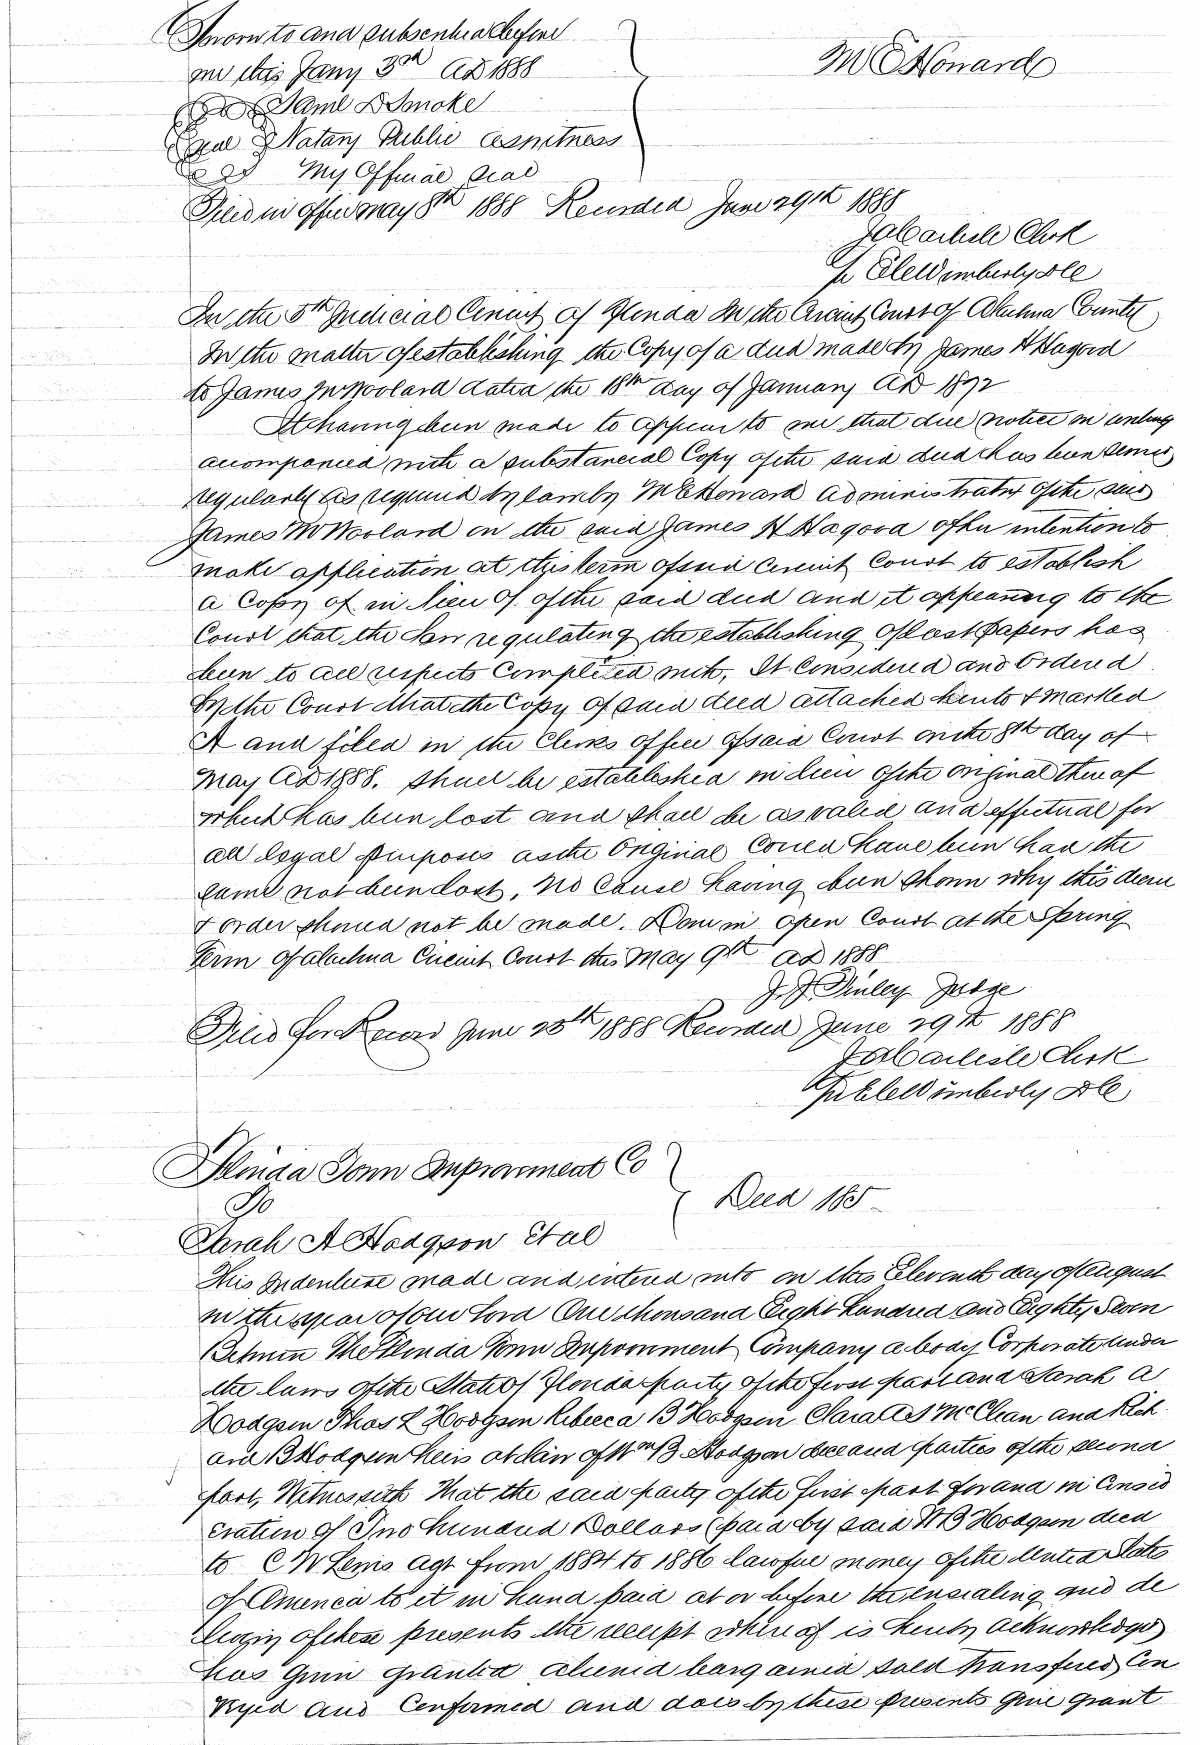 Sworn to and subscribed before
me this Jany 3rd AD 1888
M E Howard
Saml D Smoke
Seal Notary Public as witness
My Official Seal
Filed in office May 8th 1888 Recorded June 29th 1888
J A Carlisle Clerk
Wimberly DC
In the 5th Judicial Circuit of Florida In the Circuit Court of Alachua County
In the matter of establishing the Copy of a deed made by James H Hagood
to James M Woolard dated the 18th day of January AD 1872
It having been made to appear to me that due notice in writing
accompanied with a substancial Copy of the said deed has been served
regularly as required by law by M E Howard Administratrix of the said
James M Woolard on the said James H Hagood of her intention to
make application at this term of said Circuit Court to establish
a Copy of in lieu of of the said deed and it appearing to the
Court that the Law regulating the establishing of Lost Papers has
been to all respects Complied with, It Considered and Ordered
By the Court that the Copy of said deed attached hereto & marked
A and filed in the Clerks office of said Court on the 8th day of
May AD 1888. Shall be established in lieu of the original thereof
which has been lost and shall be as valid and effectual for
all legal purposes as the Original Could have been had the
same not been lost, No Cause having been shown why this decree
& order should not be made. Done in open Court at the Spring
Term of Alachua Circuit Court this May 9th AD 1888
J. J. Finley Judge
Filed for Record June 25th 1888 Recorded June 29th 1888
J A Carlisle Clerk
Wimberly DC
Florida Town Improvement Co
To
Deed 185
Sarah A Hodgson Et al
This Indenture made and entered into on this Eleventh day of August
in the year of our Lord One thousand Eight hundred and Eighty Seven
Between The Florida Town Improvement Company a body Corporate under
the laws of the State of Florida party of the first part and Sarah A
Hodgson Thos L Hodgson Rebecca B Hodgson Clara A S McClean and Rich
ard B Hodgson heirs at law of Wm B Hodgson deceased parties of the second
part, Witnesseth That the said party of the first part for and in Consid
eration of Two hundred Dollars (paid by said W B Hodgson decd
to C W Lewis agt from 1884 to 1886 lawful money of the United States
of America to it in hand paid at or before the ensealing and de
livery of these presents the receipt whereof is hereby acknowledged
has given granted aliened bargained sold transfered Con
veyed and Confirmed and does by these presents give grant